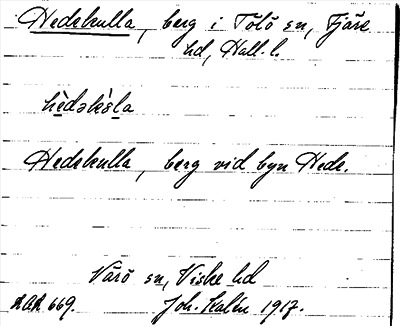 Hedekulla, berg i Tölö sn, Fjäre
hd, Hall. l.
hèdəkùla
Hedekulla, berg vid byn Hede.
Värö sn, Viske hd
669. Joh. Kalén 1917.